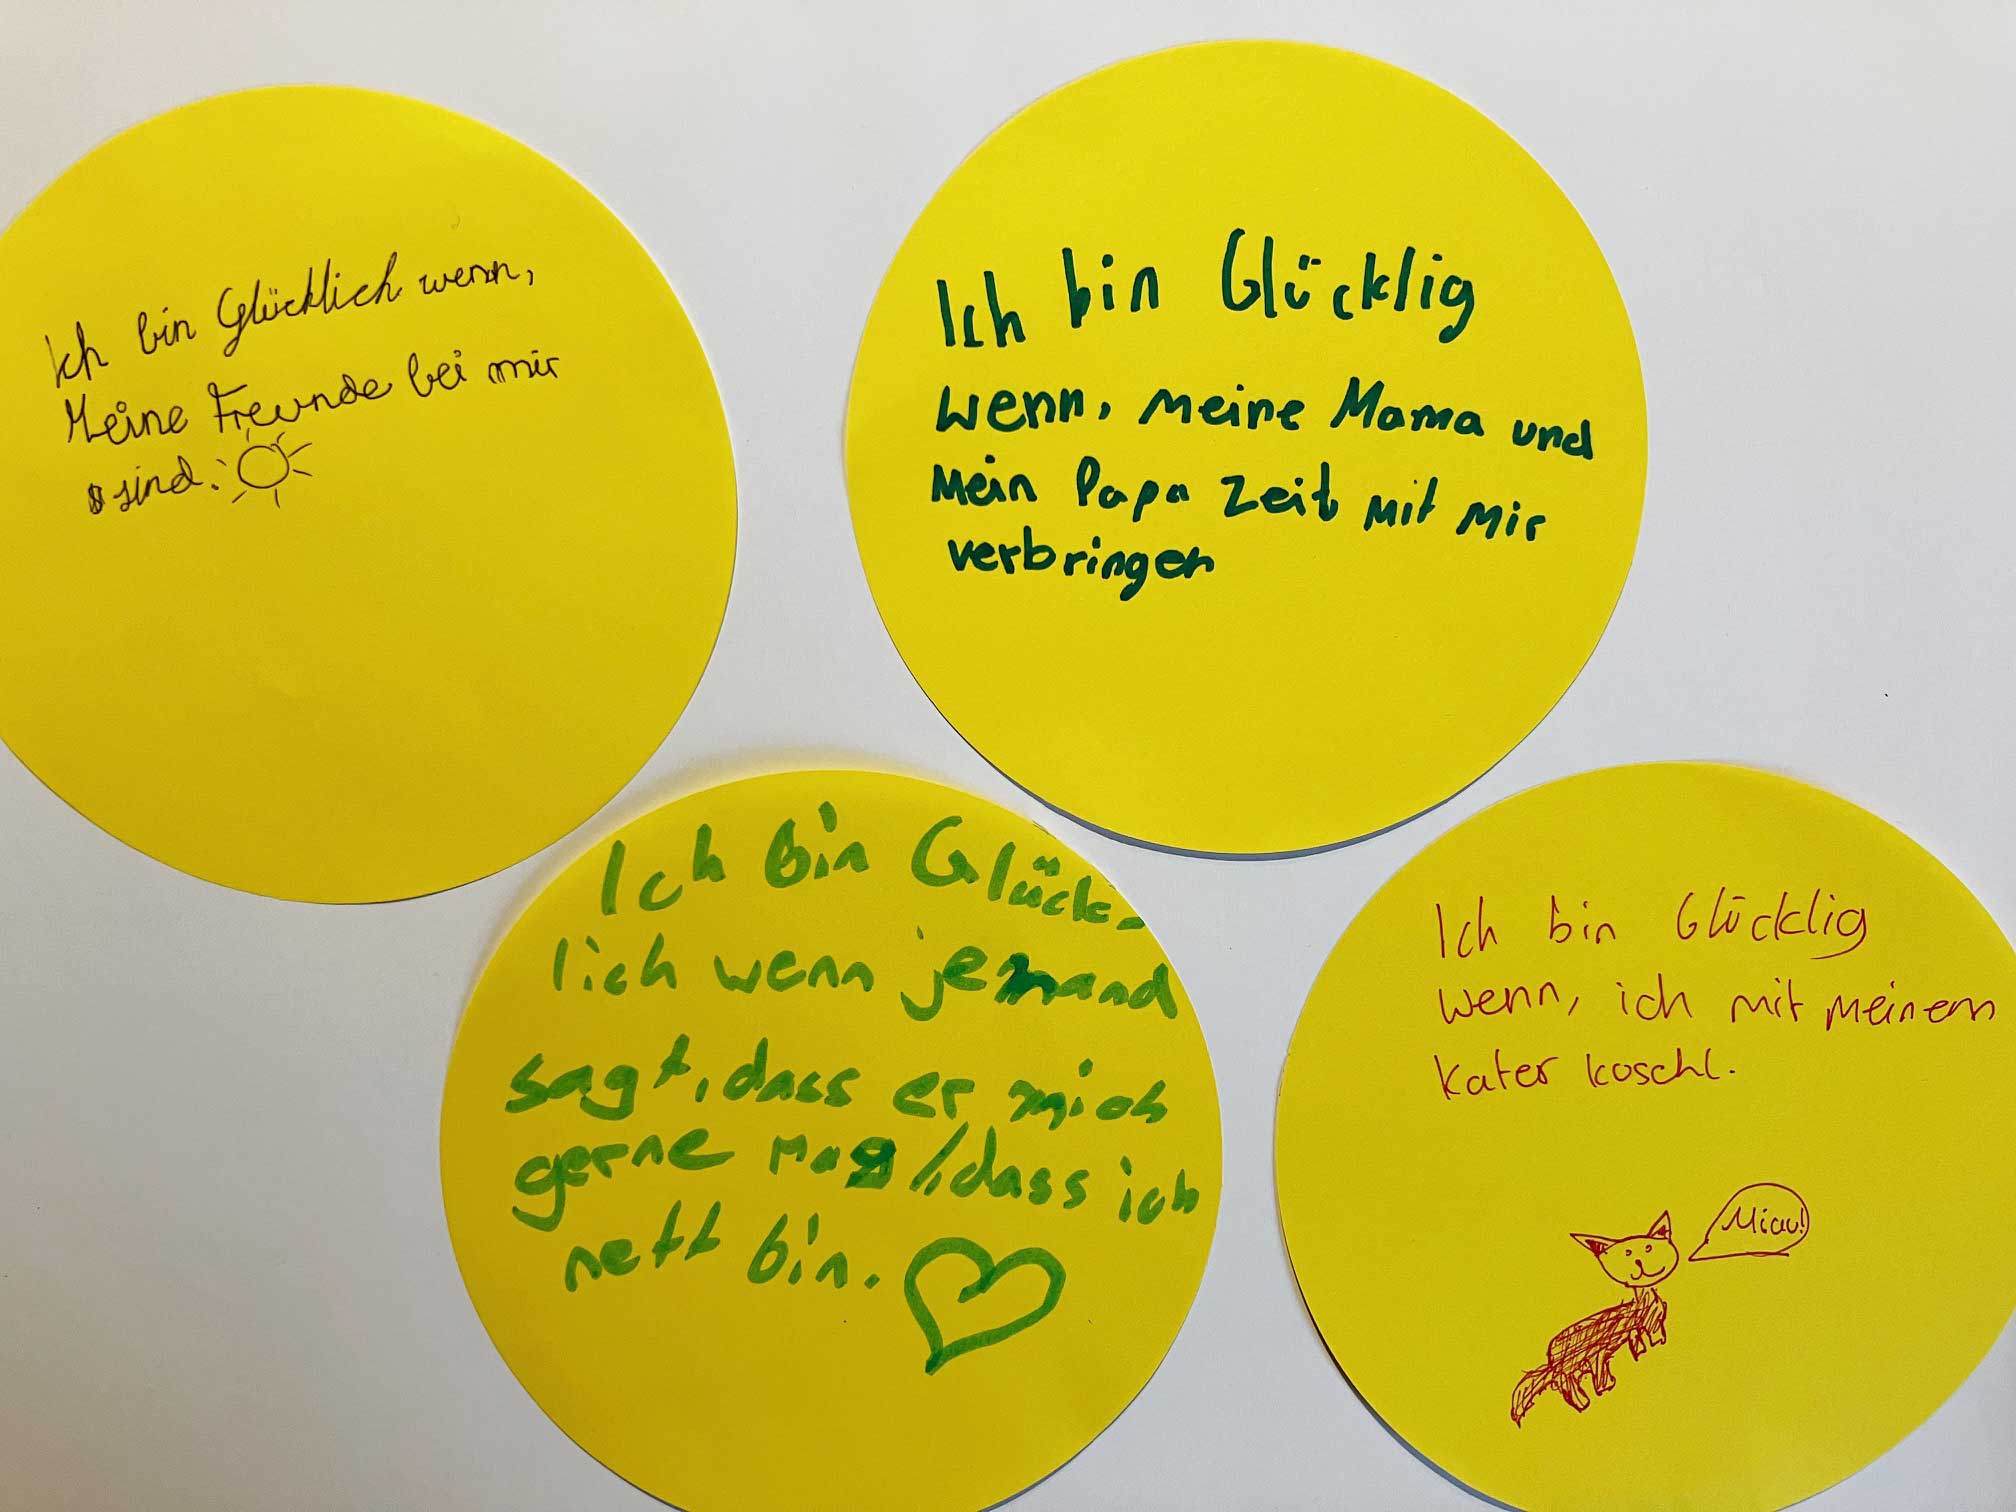 Ich bin Glücklich wenn,
Meine Freunde bei mir
sind.
Ich bin Glücklig
wenn, meine Mama und
mein Papa Zeit mit mir
verbringen
Ich bin Glück-
lich wenn jemand
sagt, dass er mich
gerne mag /, dass ich
nett bin.
Ich bin Glücklig
wenn, ich mit meinem
kater koschl.
Miau!